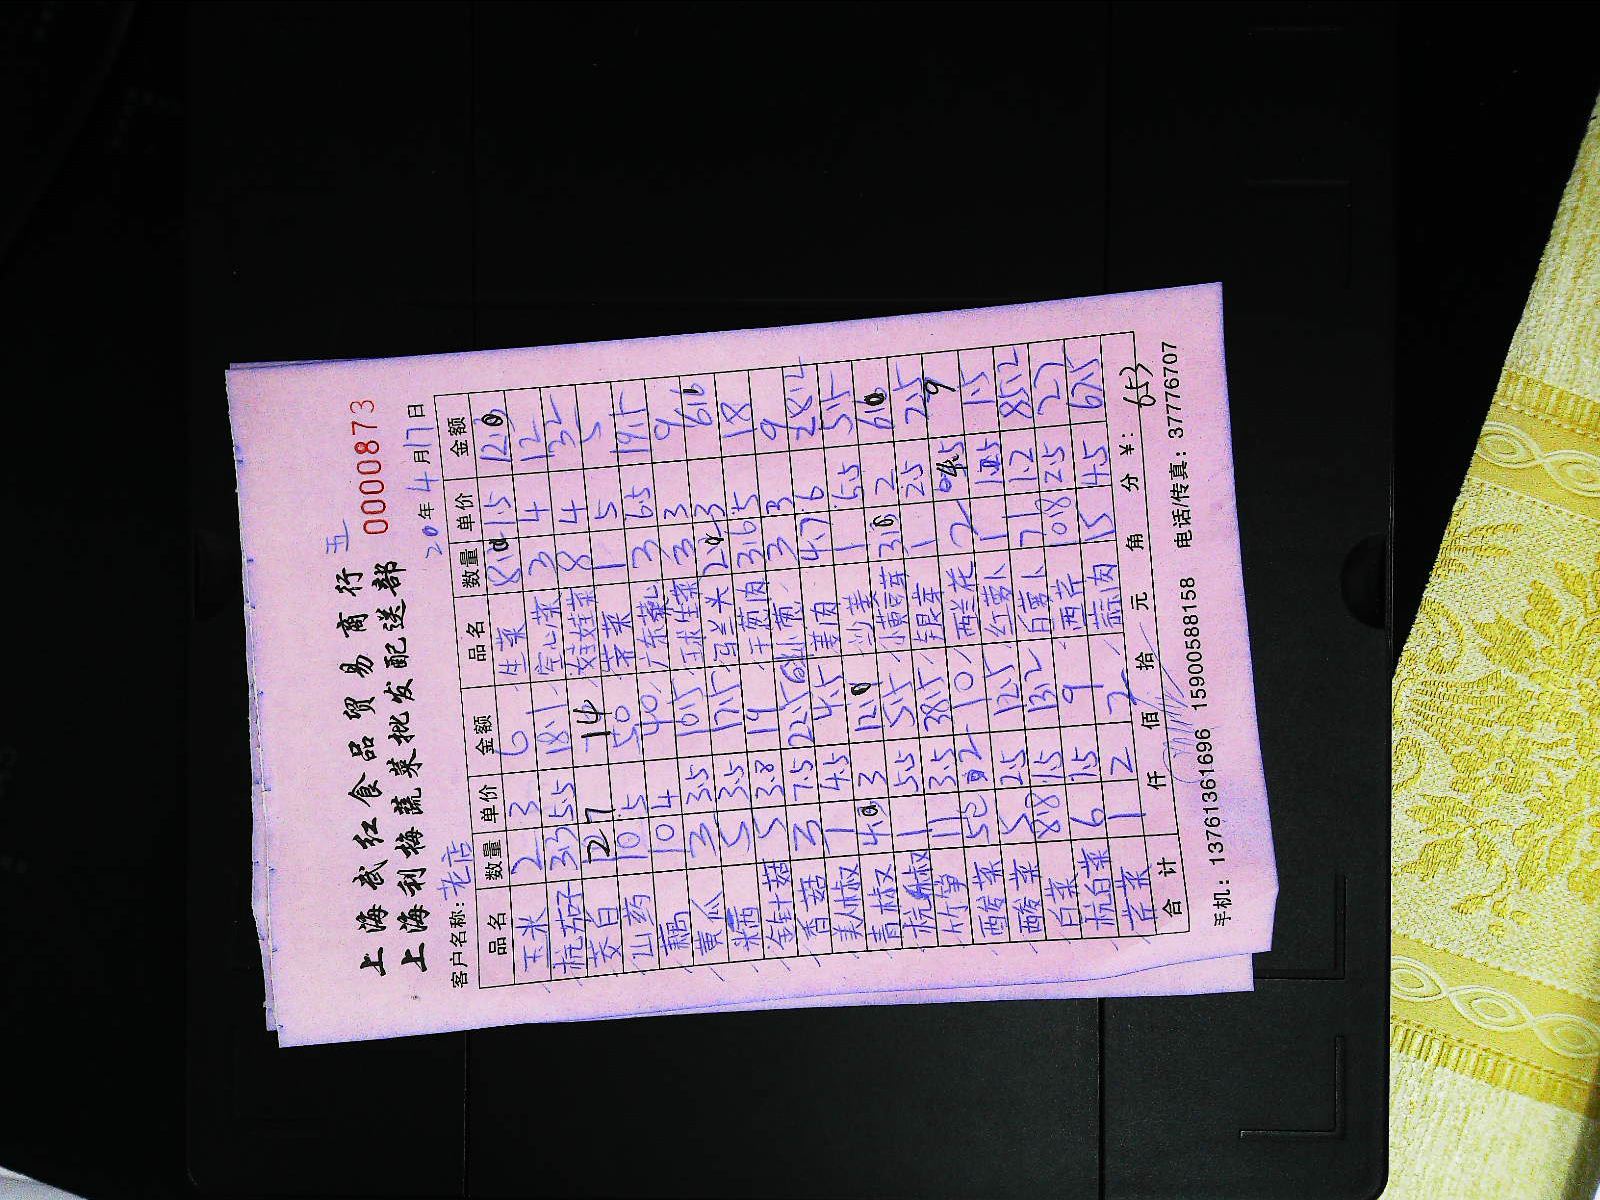 五
上海武红食品贸易商行
上海利梅蔬菜批发配送部
0000873
客户名称: 老店 20 年 4 月 17 日
品名 数量 单价 金额 品名 数量 单价 金额
玉米 2 3 6 生菜 8 1.5 12.0
杭茄子 3.3 5.5 18.1 空心菜 3 4 12
茭白 2 7 14 娃娃菜 8 4 32
山药 10 5 50 荠菜 1 5 5
藕 10 4 40 广东菜心 3 6.5 19.5
黄瓜 3 3.5 10.5 3 3 9
5 3.5 17.5 马兰头 3
金针菇 5 3.8 19 干葱肉 3.6 5 18
香菇 3 7.5 22.5 小葱 3 3 9
美人椒 1 4.5 4.5 姜肉 4.7 6 28.2
青椒 4.0 3 12.0 沙姜 1 5.5 5.5
杭椒 1 5.5 5.5 小黄豆芽 2
竹笋 11 3.5 38.5 银芽 1 2.5 2.5
酸菜 5 2 10 西兰花 2 4.5 9
酸菜 5 2.5 12.5 红萝卜 1 1.5 1.5
白菜 8.8 1.5 13.2 白萝卜 71 1.2 85.2
杭白菜 6 1.5 9 西芹 10.8 2.5 27
芹菜 1 2 2 蒜肉 15 4.5 67.5
合计 仟 佰 拾 元 角 分 ¥: 653
手机: 13761361696 15900588158 电话/传真: 37776707